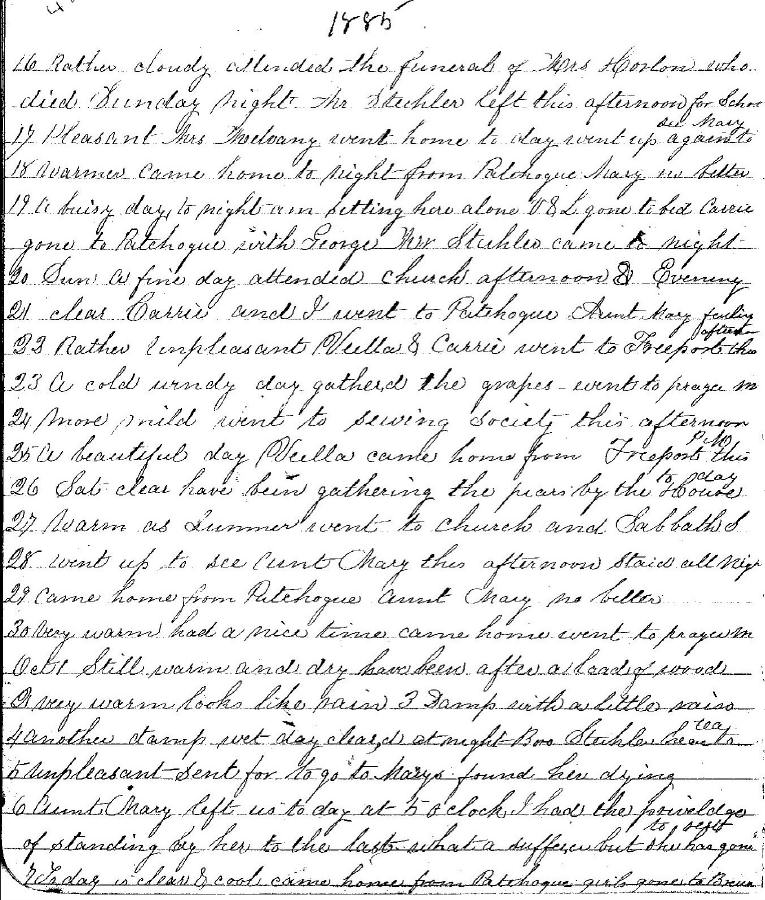 1885
16 Rather cloudy attended the funeral of Mrs who
died Sunday night Mr Stuhler left this afternoon for
see Mary
17 Pleasant Mrs went home to day went up again to
18 Warmer came home to night from Patchogue Mary no better
19 A buisy day, to night am setting here alone V & L gone to bed Carrie
gone to Patchogue with George Mr Stuhler came to night
20 Sun A fine day attended church afternoon & Evening
21 clear Carrie and I went to Patchogue Aunt Mary
afternoon
22 Rather Unpleasant Vella & Carrie went to Freeport this
23 A cold windy day gathered the grapes - went to prayer m
24 More mild went to sewing society this afternoon
P.M.
25 A beautiful day Vella came home from Freeport this
to day
26 Sat clear have been gathering the pears by the House
27 Warm as Summer went to church and Sabbath S
28 went up to see Aunt Mary this afternoon staid all nigh
29 Came home from Patchogue Aunt Mary no better
30 Very warm had a nice time came home went to prayer m
Oct 1 Still warm and dry have been after a load of wood
2 very warm looks like rain 3 Damp with a little rain
tea
4 another damp wet day cleard at night Bro Stuhler to
5 Unpleasant - sent for to go to Marys found her dying
6 Aunt Mary left us to day at 5 oclock I had the priveldge
to rest
of standing by her to the last what a sufferer but she has gone
7 To day is clear & cool came home from Patchogue girls gone to